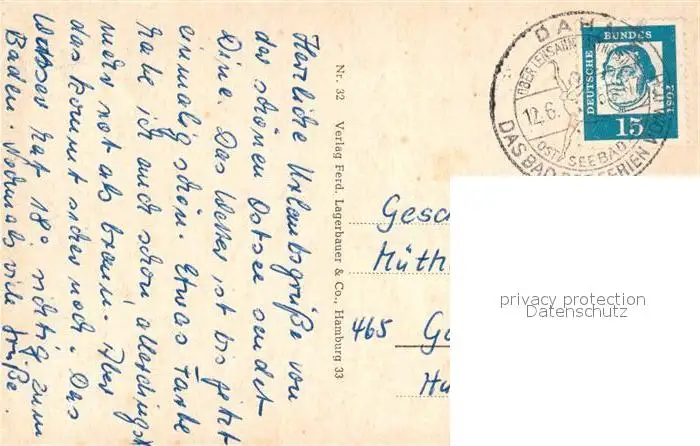 Herzliche Urlaubsgrüße von
der schönen Ostsee sendet
Dine. Das Wetter ist bis jetzt
einmalig schön. Etwas Farbe
habe ich auch schon allerdings
mehr rot als braun. Aber
das kommt sicher noch. Das
Wasser hat 18° richtig zum
Baden. Nochmals viele Grüße.
Nr. 32 Verlag Ferd. Lagerbauer & Co., Hamburg 33
DAHME
ÜBER LENSAHN
12.6.
OSTSEEBAD
DAS BAD FERIEN VON
DEUTSCHE BUNDES
15
Gesch
Müth
465 G
Hu
privacy protection
Datenschutz